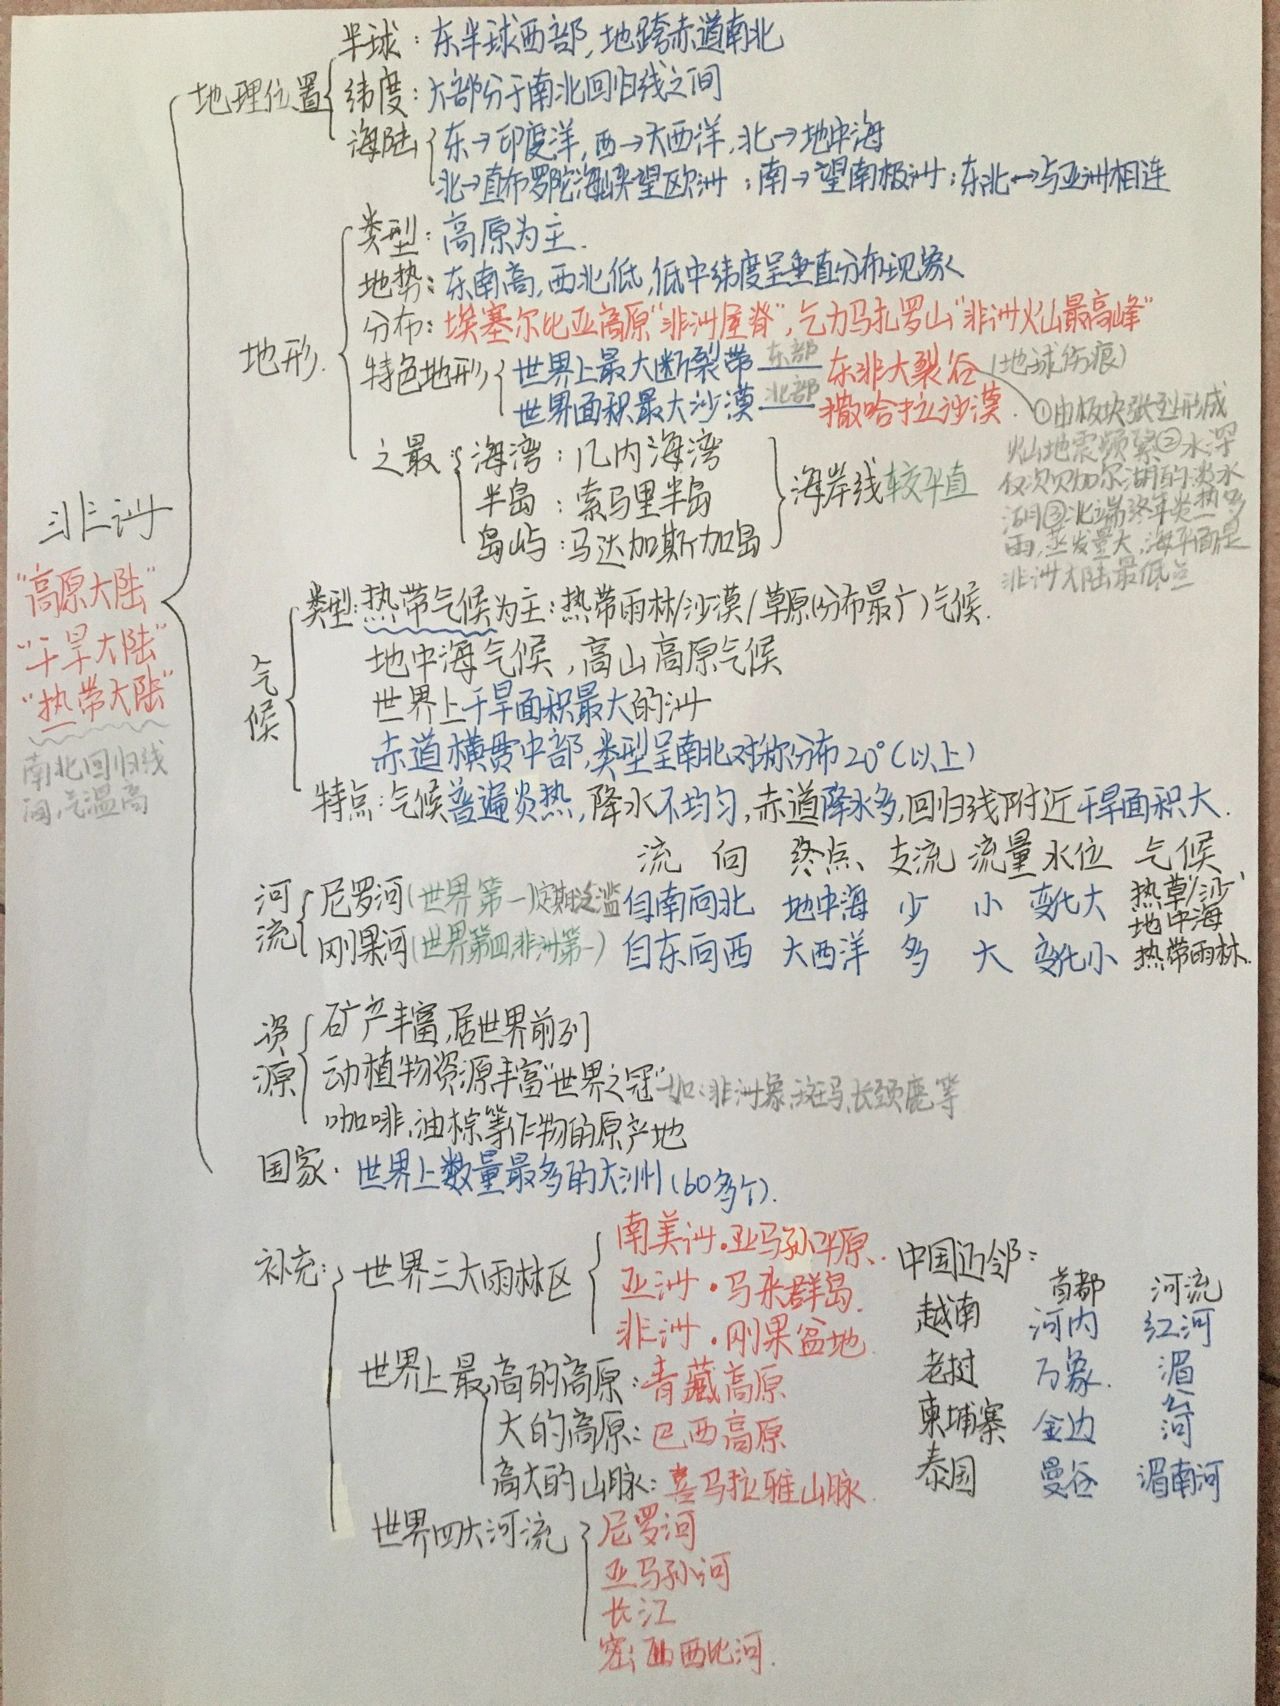 半球：东半球西部，地跨赤道南北
地理位置 纬度：大部分于南北回归线之间
海陆 东→印度洋，西→大西洋，北→地中海
北→直布罗陀海峡望欧洲；南→望南极洲；东北↔与亚洲相连
类型：高原为主.
地势：东南高，西北低，低中纬度呈垂直分布现象
分布：埃塞尔比亚高原"非洲屋脊"，乞力马扎罗山"非洲火山最高峰"
地形.
特色地形 世界上最大断裂带 东部 东非大裂谷（地球伤痕）
世界面积最大沙漠 北部 撒哈拉沙漠.
①由板块张裂形成
火山地震频繁②水深
仅次贝加尔湖的淡水
湖③北端终年炎热少
雨，蒸发量大，海平面是
非洲大陆最低点
之最 海湾：几内海湾
半岛：索马里半岛 海岸线较平直
岛屿：马达加斯加岛
非洲
"高原大陆"
"干旱大陆"
"热带大陆"
南北回归线
间，气温高
气候
类型：热带气候为主：热带雨林/沙漠/草原（分布最广）气候.
地中海气候，高山高原气候
世界上干旱面积最大的洲
赤道横贯中部，类型呈南北对称分布20°（以上）
特点：气候普遍炎热，降水不均匀，赤道降水多，回归线附近干旱面积大.
流向 终点、支流 流量 水位 气候
河流
尼罗河（世界第一）定期泛滥 自南向北 地中海 少 小 变化大 热草/沙/
地中海
刚果河（世界第四，非洲第一） 自东向西 大西洋 多 大 变化小 热带雨林.
资源
矿产丰富，居世界前列
动植物资源丰富"世界之冠" 如：非洲象、斑马、长颈鹿等
咖啡、油棕等作物的原产地
国家：世界上数量最多的大洲（60多个）.
补充：
世界三大雨林区 南美洲·亚马孙平原.
亚洲·马来群岛.
非洲·刚果盆地.
世界上最高的高原：青藏高原
大的高原：巴西高原
高大的山脉：喜马拉雅山脉.
世界四大河流 尼罗河
亚马孙河
长江
密西西比河.
中国近邻：
首都 河流
越南 河内 红河
老挝 万象. 湄公河
柬埔寨 金边
泰国 曼谷 湄南河